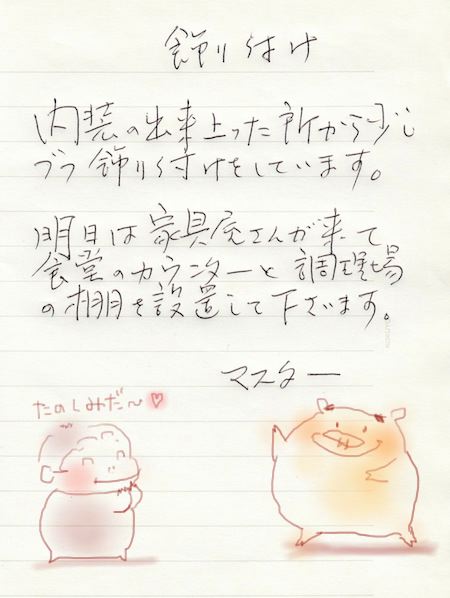 飾り付け
内装の出来上った所から少し
ヅヅ飾り付けをしています。
明日は家具屋さんが来て
食堂のカウンターと調理場
の棚を設置して下さいます。
マスター
たのしみだ〜♡